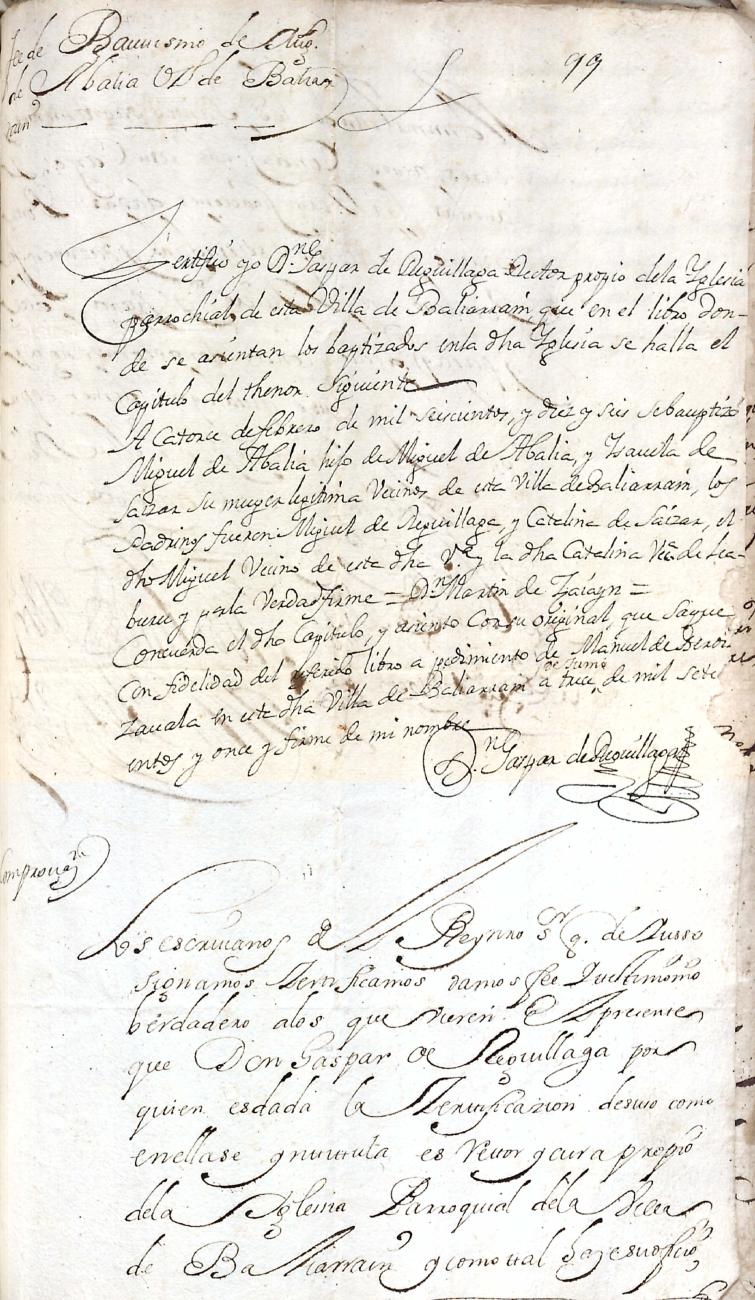 fee de Bautismo de Mig.
de Abalia Vº de Baliar
rain
99
Zertifico yo Dn Gaspar de Reguillaga Rector propio dela Yglesia
parrochial de esta Villa de Baliarrain que en el libro don-
de se asientan los baptizados enla dha Yglesia se halla el
Capitulo del thenor siguiente
A Catorce de febrero de mil seiscientos, y diez y seis se bauptizo
Miguel de Abalia hijo de Miguel de Abalia, y Ysavela de
Saizar su muger legitima Vecinos de esta Villa de Baliarrain, los
Padrinos fueron Miguel de Reguillaga, y Catalina de Saizar, el
dho Miguel Vecino de esta dha Va y la dha Catalina Vea de Lea-
buru y por la Verdad firme = Dn Martin de Zaiayn =
Concuerda el dho Capitulo, y asiento con su original, que saque
con fidelidad del referido libro a pedimiento de Manuel de Beroi
zavala en esta dha Villa de Baliarrain a trece de Junio de mil sete
cientos y once y firme de mi nombre
Dn Gaspar de Reguillaga
Comprovazn
Los escrivanos del Reyno sr q. de Yusso
signamos Zertificamos damos fee y testimonio
berdadero alos que vieren el presente
que Don Gaspar de Reguillaga por
quien esdada la Zertificazion desuso como
enellase yntitula es Retor y cura propio
dela Iglesia Parroquial dela Villa
de Baliarrain y como ttal haze su oficio